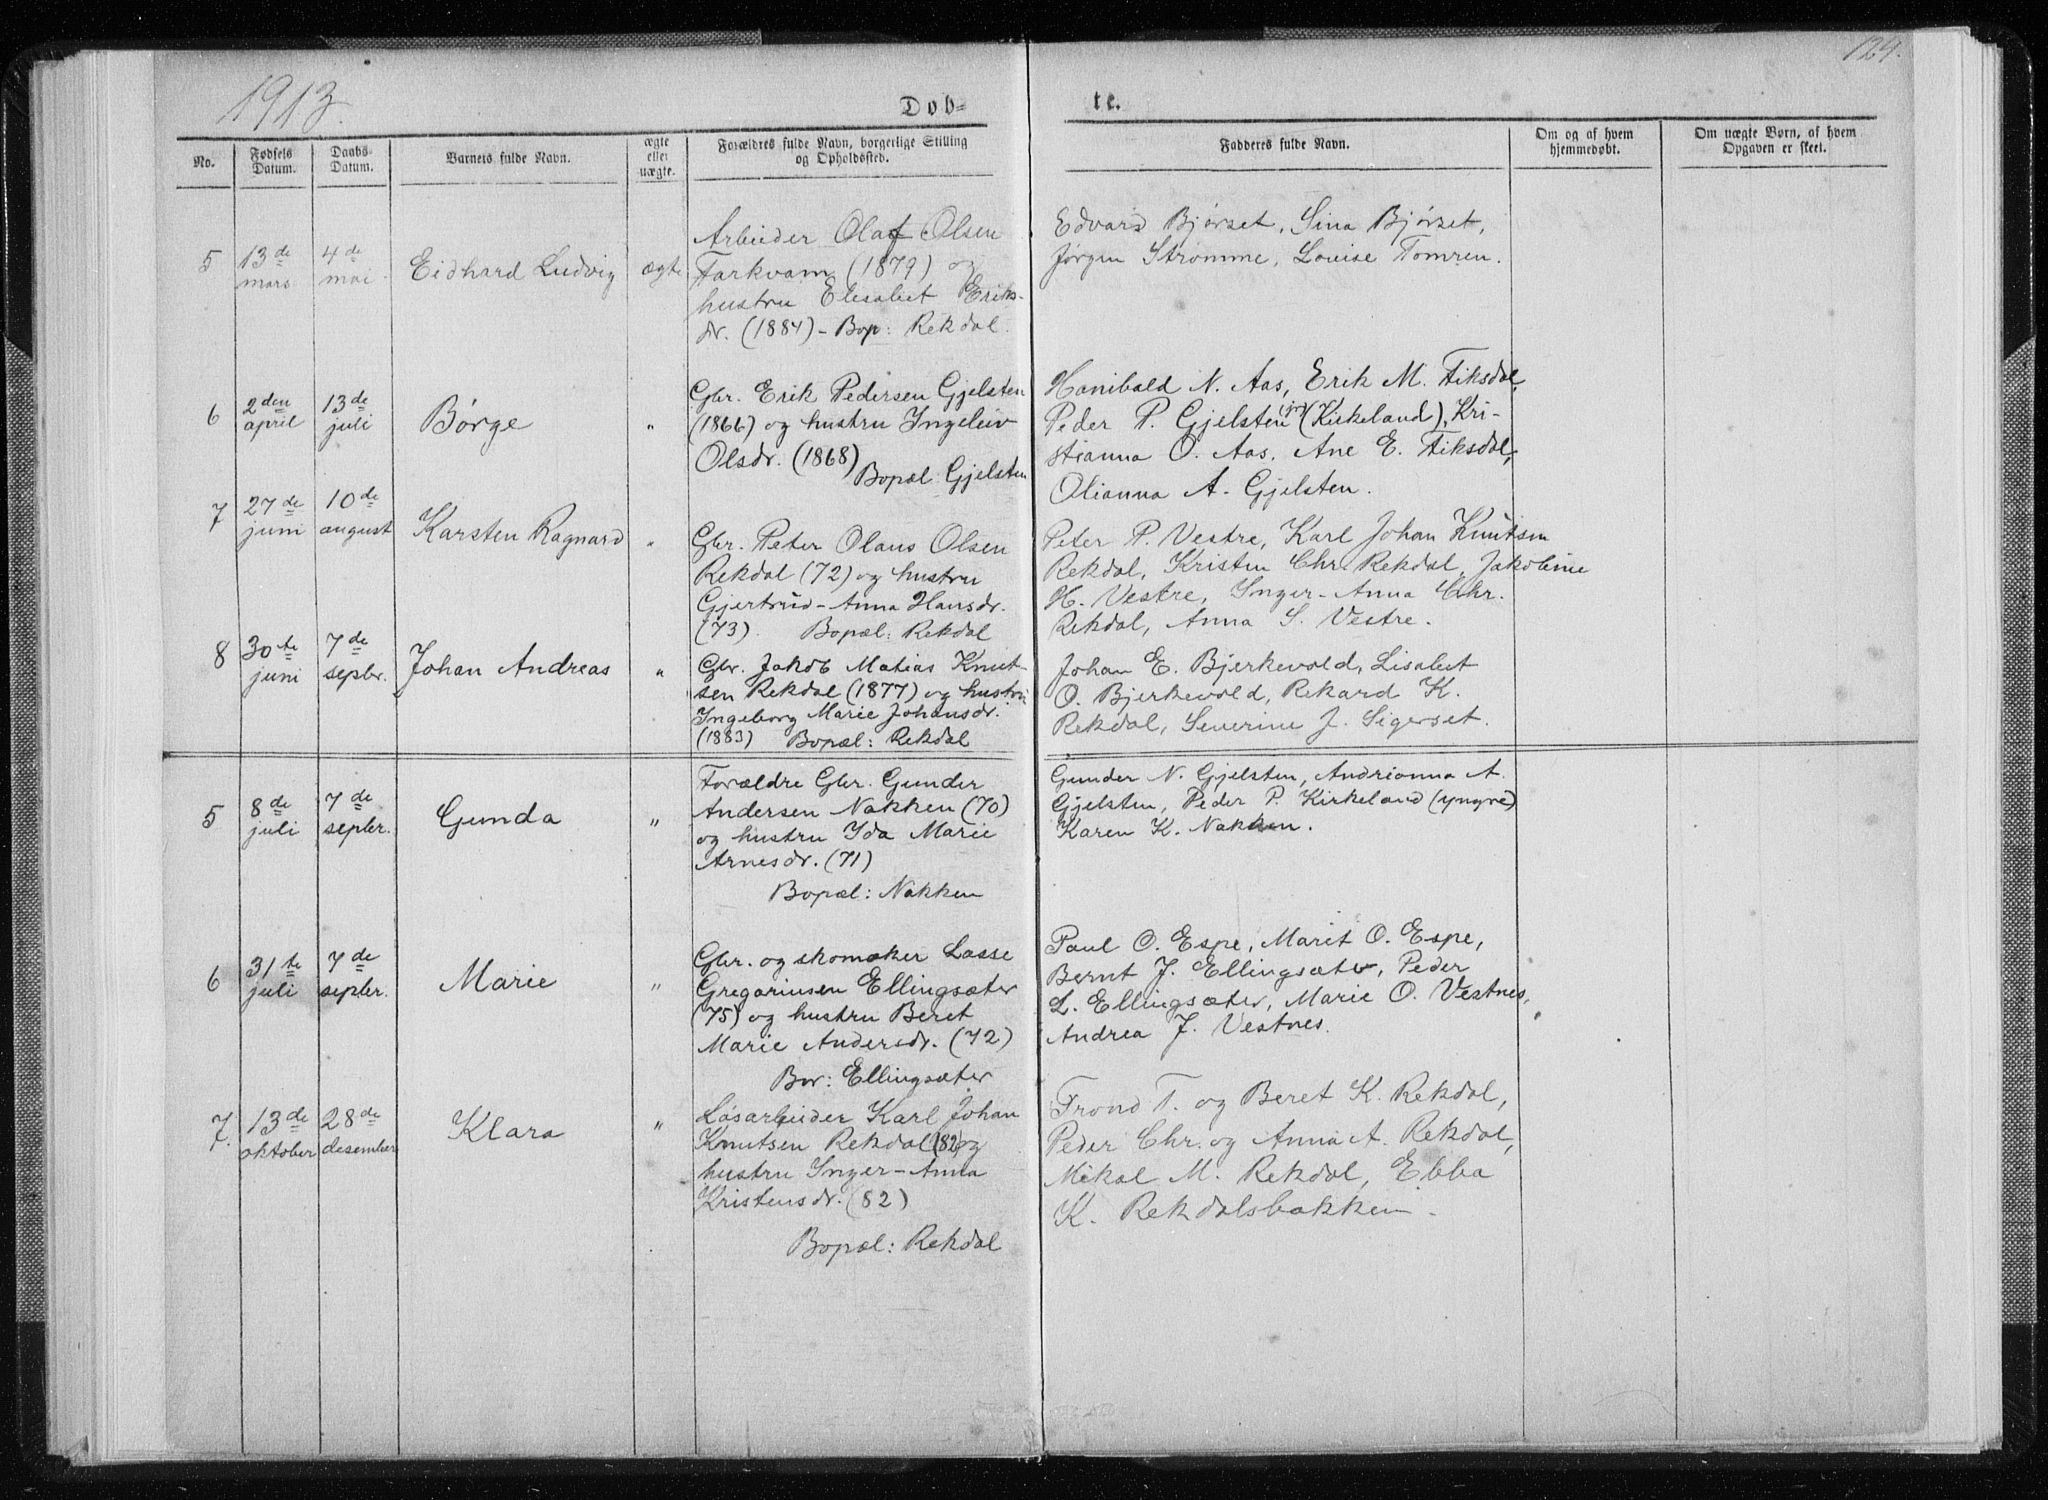 1913.
124.
Døb=
te.
No.
Fødsels Datum.
Daabs- Datum.
Barnets fulde Navn.
ægte eller uægte.
Forældres fulde Navn, borgerlige Stilling og Opholdssted.
Fadderes fulde Navn.
Om og af hvem hjemmedøbt.
Om uægte Børn, af hvem Opgaven er skeet.
5
13de mars
4de mai
Eidhard Ludvig
ægte
Arbeider Olaf Olsen
Farkvam (1879) og
hustru Elesabet Eriks-
dr. (1884) - Bop: Rekdal.
Edvard Bjørset, Sina Bjørset,
Jørgen Strømme, Louise Tomren.
6
2den april
13de juli
Børge
"
Gbr. Erik Pedersen Gjelsten
(1866) og hustru Ingeleiv
Olsdr. (1868)
Bopæl Gjelsten
Hanibald N. Aas, Erik M. Fiksdal,
Peder P. Gjelsten (Kirkeland), Kri-
stianna O. Aas. Ane E. Fiksdal,
Olianna A. Gjelsten.
7
27de juni
10de august
Karsten Ragnard
"
Gbr. Peter Olaus Olsen
Rekdal (72) og hustru
Gjertrud-Anna Hansdr.
(73). Bopæl: Rekdal
Peter P. Vestre, Karl Johan Knutsen
Rekdal, Kristen Chr. Rekdal, Jakobine
H. Vestre, Inger-Anna Chr.
Rekdal, Anna S. Vestre.
8
30te juni
7de septbr.
Johan Andreas
"
Gbr. Jakob Matias Knut-
sen Rekdal (1877) og hustru
Ingeborg Marie Johansdr.
(1883) Bopæl: Rekdal
Johan E. Bjerkevold, Lisabet
O. Bjerkevold, Rekard K.
Rekdal, Severine J. Sigerset.
5
8de juli
7de septbr.
Gunda
"
Forældre Gbr. Gunder
Andersen Nakken (70)
og hustru Ida Marie
Arnesdr. (71)
Bopæl: Nakken
Gunder N. Gjelsten, Andrianna A.
Gjelsten, Peder P. Kirkeland (yngre)
Karen K. Nakken.
6
31te juli
7de septbr.
Marie
"
Gbr. og skomaker Lasse
Gregoriusen Ellingsæter
(75) og hustru Beret
Marie Andersdr. (72)
Bor: Ellingsæter
Paul O. Espe, Marit O. Espe,
Bernt J. Ellingsæter, Peder
L. Ellingsæter, Marie O. Vestnes,
Andrea J. Vestnes.
7.
13de oktober
28de desember
Klara
"
Løsarbeider Karl Johan
Knutsen Rekdal (82) og
hustru Inger-Anna
Kristensdr. (82)
Bopæl: Rekdal
Trond T. og Beret K. Rekdal,
Peder Chr. og Anna A. Rekdal,
Mikal M. Rekdal, Ebba
K. Rekdalsbakken.